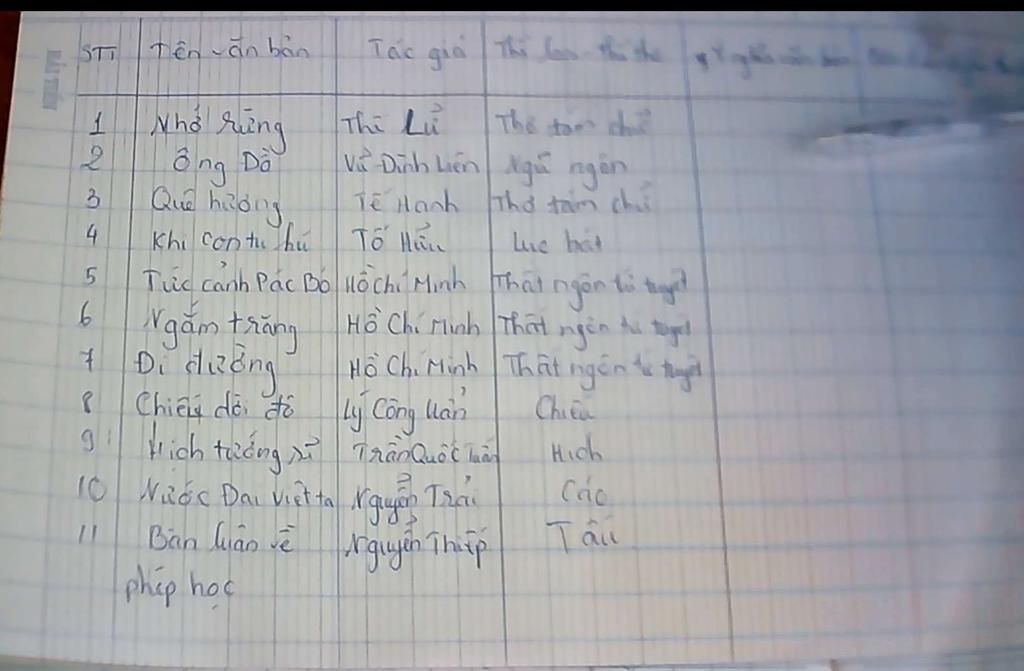 STT Tên văn bản Tác giả Thể loại - thể thơ Ý nghĩa văn bản
1 Nhớ rừng Thế Lữ Thơ tám chữ
2 Ông Đồ Vũ Đình Liên Ngũ ngôn
3 Quê hương Tế Hanh Thơ tám chữ
4 Khi con tu hú Tố Hữu Lục bát
5 Tức cảnh Pác Bó Hồ Chí Minh Thất ngôn tứ tuyệt
6 Ngắm trăng Hồ Chí Minh Thất ngôn tứ tuyệt
7 Đi đường Hồ Chí Minh Thất ngôn tứ tuyệt
8 Chiếu dời đô Lý Công Uẩn Chiếu
9 Hịch tướng sĩ Trần Quốc Tuấn Hịch
10 Nước Đại Việt ta Nguyễn Trãi Cáo
11 Bàn luận về Nguyễn Thiếp Tấu
phép học